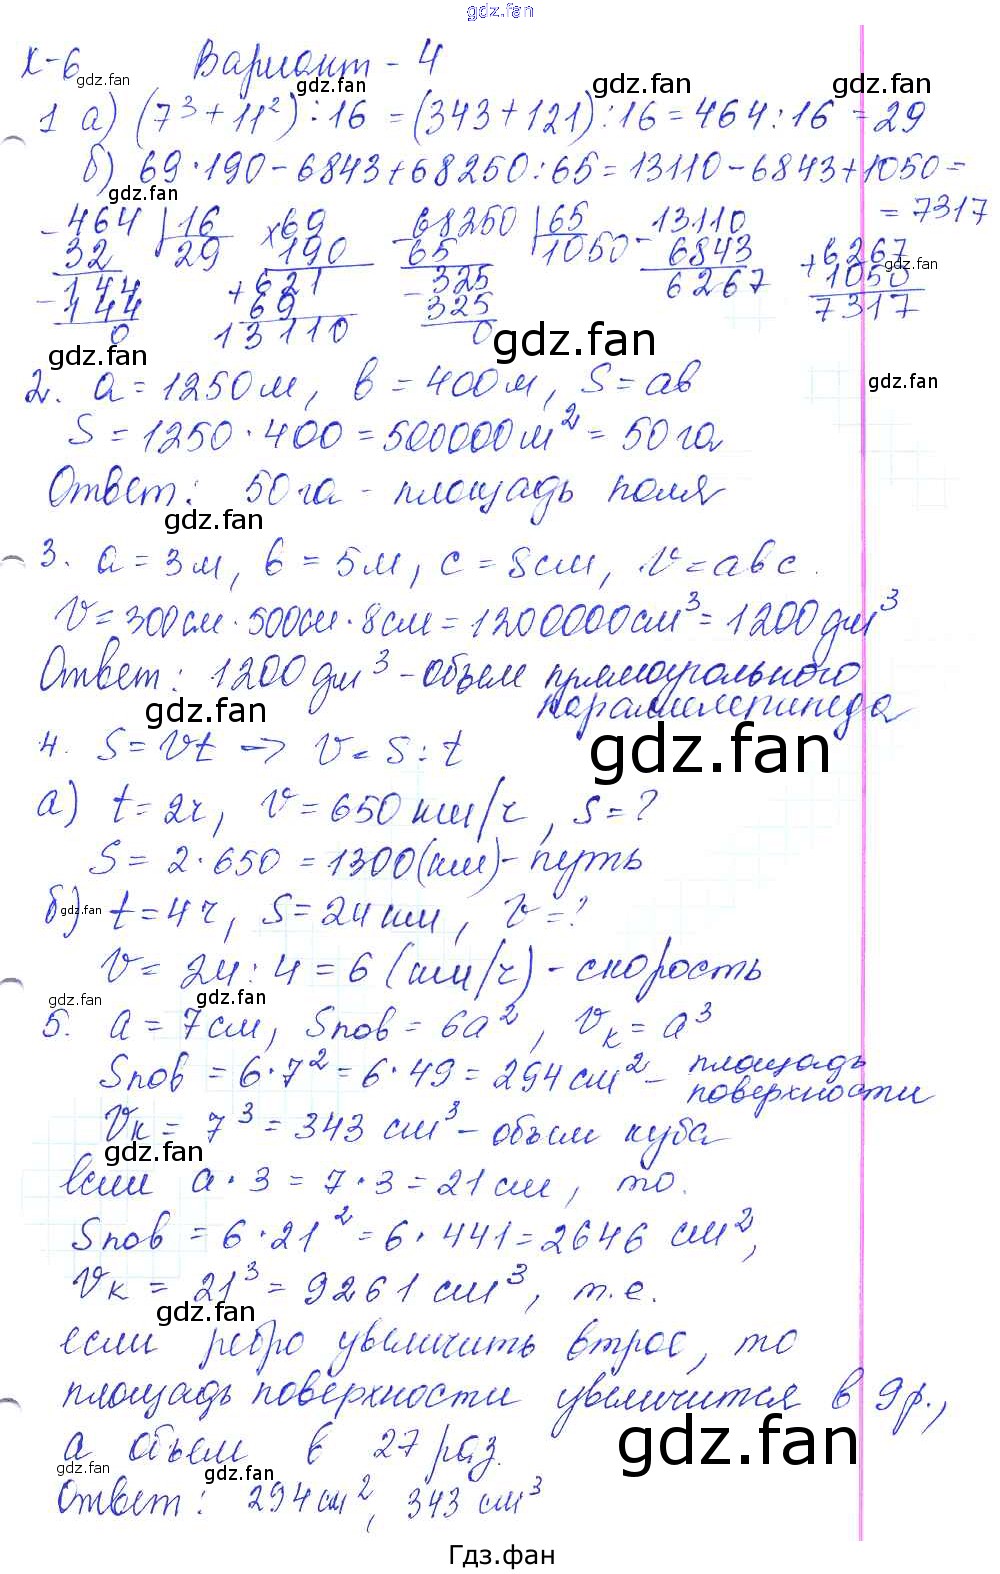 gdz.fan
К-6 Вариант - 4
gdz.fan gdz.fan
1 а) (7³ + 11²) : 16 = (343 + 121) : 16 = 464 : 16 = 29
б) 69 · 190 - 6843 + 68250 : 65 = 13110 - 6843 + 1050 =
gdz.fan
= 7317
- 464 | 16 × 69 - 68250 | 65 - 13110
32 29 190 65 1050 6843 + 6267
gdz.fan
144 + 621 - 325 6267 1050
- 144 69 325 7317
0 13110 0
gdz.fan gdz.fan
2. a = 1250 м, b = 400 м, S = ab
gdz.fan
S = 1250 · 400 = 500000 м² = 50 га
Ответ: 50 га - площадь поля
gdz.fan
3. a = 3 м, b = 5 м, c = 8 см, V = abc.
V = 300 см · 500 см · 8 см = 1200000 см³ = 1200 дм³
Ответ: 1200 дм³ - объем прямоугольного
параллелепипеда
gdz.fan
4. S = Vt -> V = S : t
gdz.fan
а) t = 2ч, V = 650 км/ч, S = ?
S = 2 · 650 = 1300 (км) - путь
б) t = 4ч, S = 24 км, V = ?
gdz.fan
V = 24 : 4 = 6 (км/ч) - скорость
gdz.fan gdz.fan
5. a = 7 см, Sпов = 6a², Vк = a³
Sпов = 6 · 7² = 6 · 49 = 294 см² - площадь
поверхности
Vк = 7³ = 343 см³ - объем куба
gdz.fan
если a · 3 = 7 · 3 = 21 см, то.
Sпов = 6 · 21² = 6 · 441 = 2646 см²,
Vк = 21³ = 9261 см³, т.е.
gdz.fan
если ребро увеличить втрое, то
площадь поверхности увеличится в 9 р.,
а объем в 27 раз.
gdz.fan
gdz.fan gdz.fan
Ответ: 294 см², 343 см³
Гдз.фан